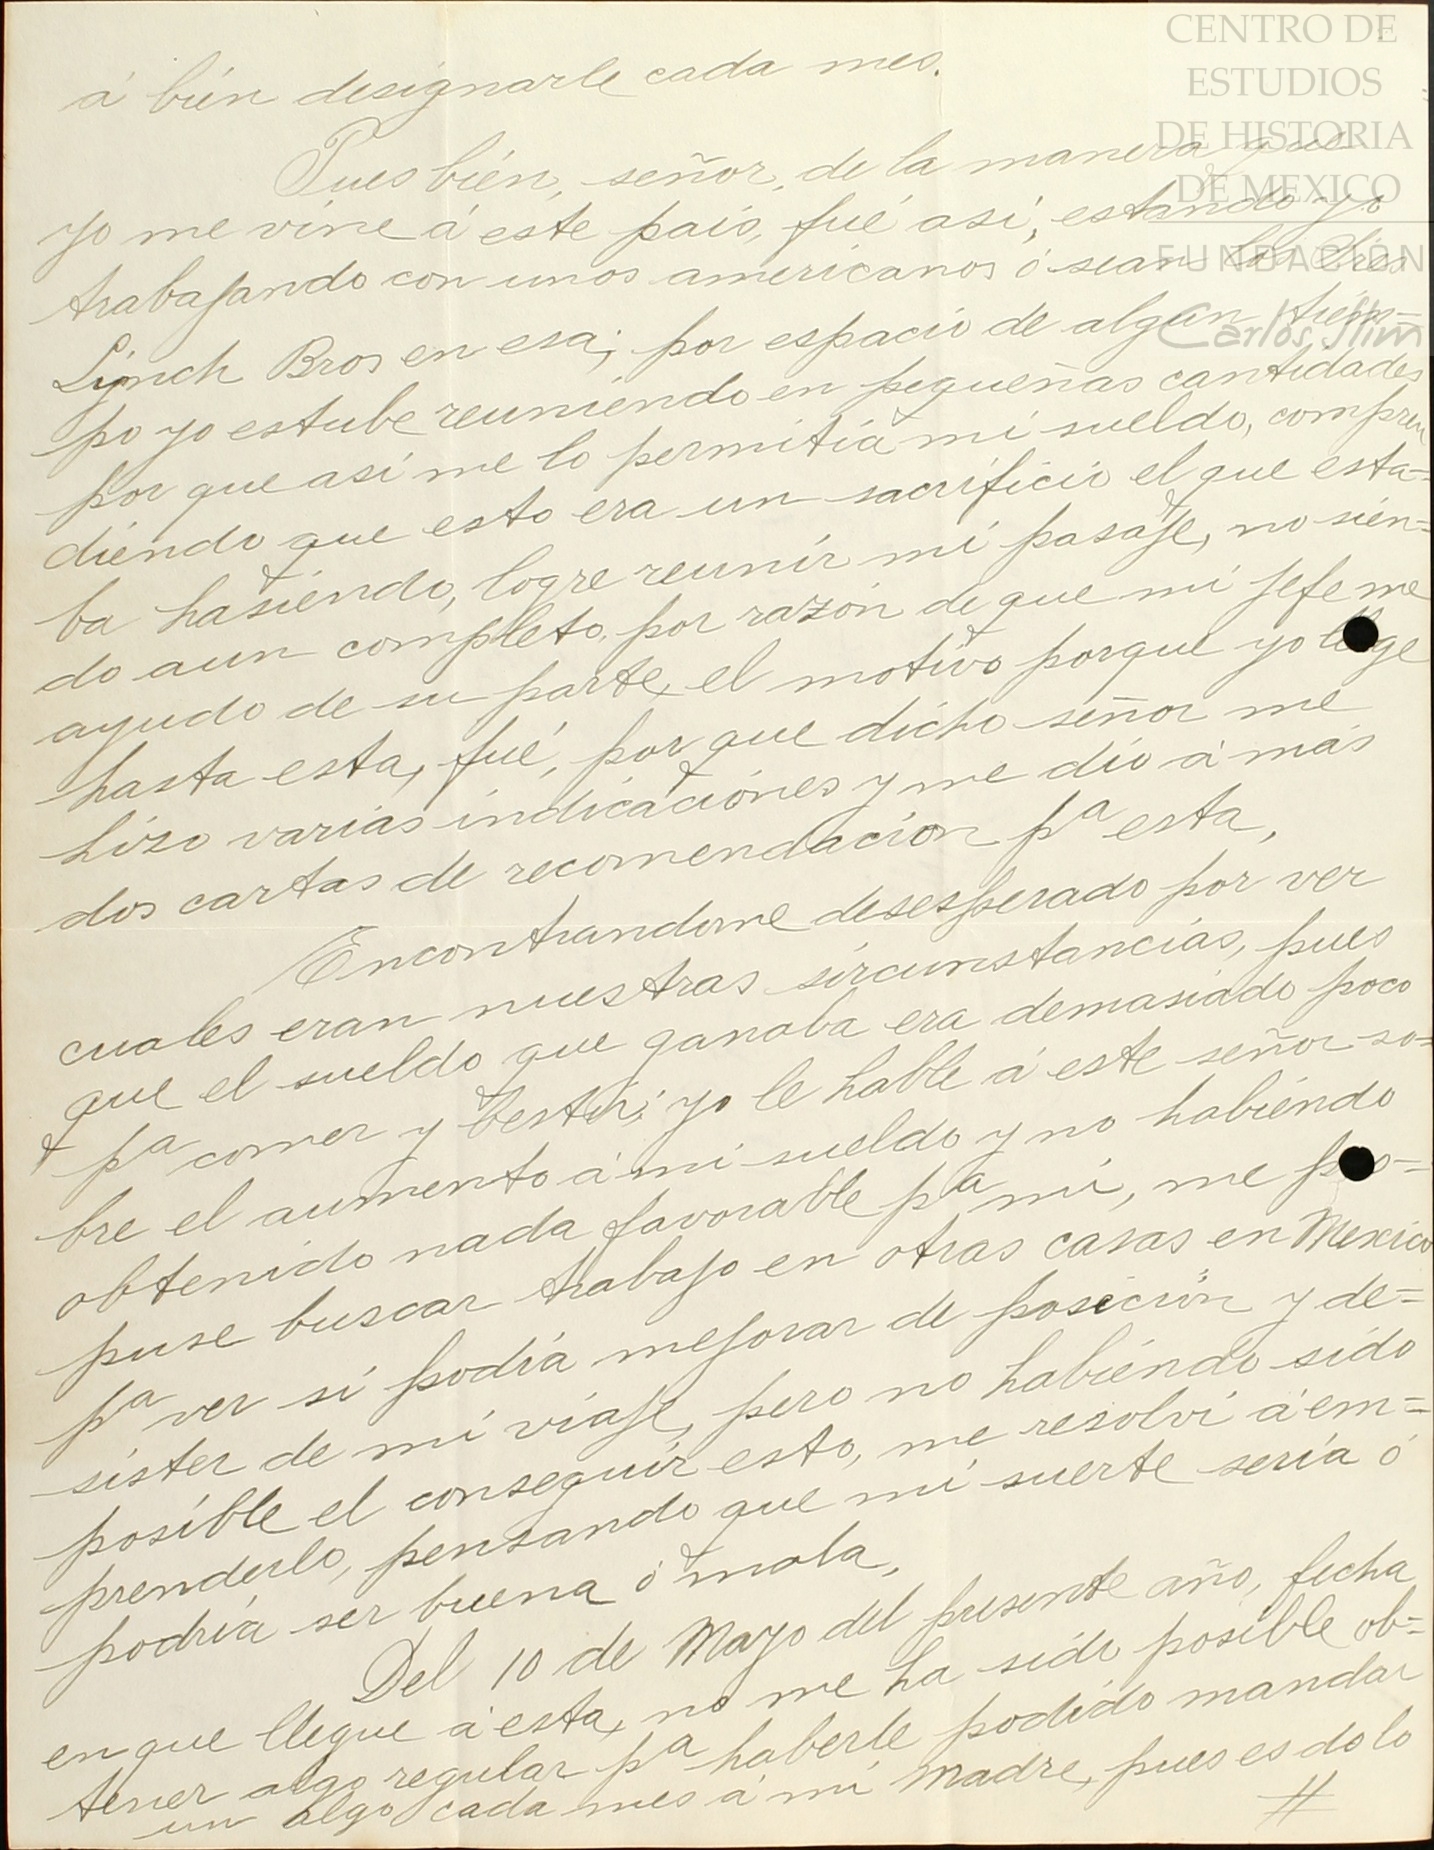 CENTRO DE
ESTUDIOS
DE HISTORIA
DE MEXICO
FUNDACIÓN
Carlos Slim
á bién designarle cada mes.
Pues bién, señor, de la manera que
yo me vine á éste país, fué así, estando yo
trabajando con unos americanos ó sean los Sres
Lynch Bros en esa; por espacio de algun tiem=
po yo estube reuniéndo en pequeñas cantidades
por que así me lo permitía mi sueldo, compren
diéndo que esto era un sacrificio el que esta=
ba hasiéndo, logre reunír mi pasaje, no sién=
do aun completo, por razón de que mi jefe me
ayudo de su parte, el motivo porque yo llege
hasta esta, fué, por que dicho señor me
hizo varias indicaciónes y me dío á más
dos cartas de recomendación pª esta,
Encontrandome desesperado por ver
cuales eran nuestras sircunstancias, pues
que el sueldo que ganaba era demasiado poco
pª comer y bestir; yo le hable á este señor so=
bre el aumento á mi sueldo y no habiéndo
obtenido nada favorable pª mí, me pro=
puse buscar trabajo en otras casas en Mexico
pª ver si podía mejorar de posición y de=
sister de mi viaje, pero no habiéndo sído
posíble el conseguír esto, me resolví á em=
prenderlo, pensando que mi suerte sería ó
podría ser buena ó mala,
Del 10 de Mayo del presente año, fecha
en que llegue á esta, no me ha sído posíble ob=
tener algo regular pª haberle podído mandar
un algo cada mes á mi Madre, pues es do lo
//